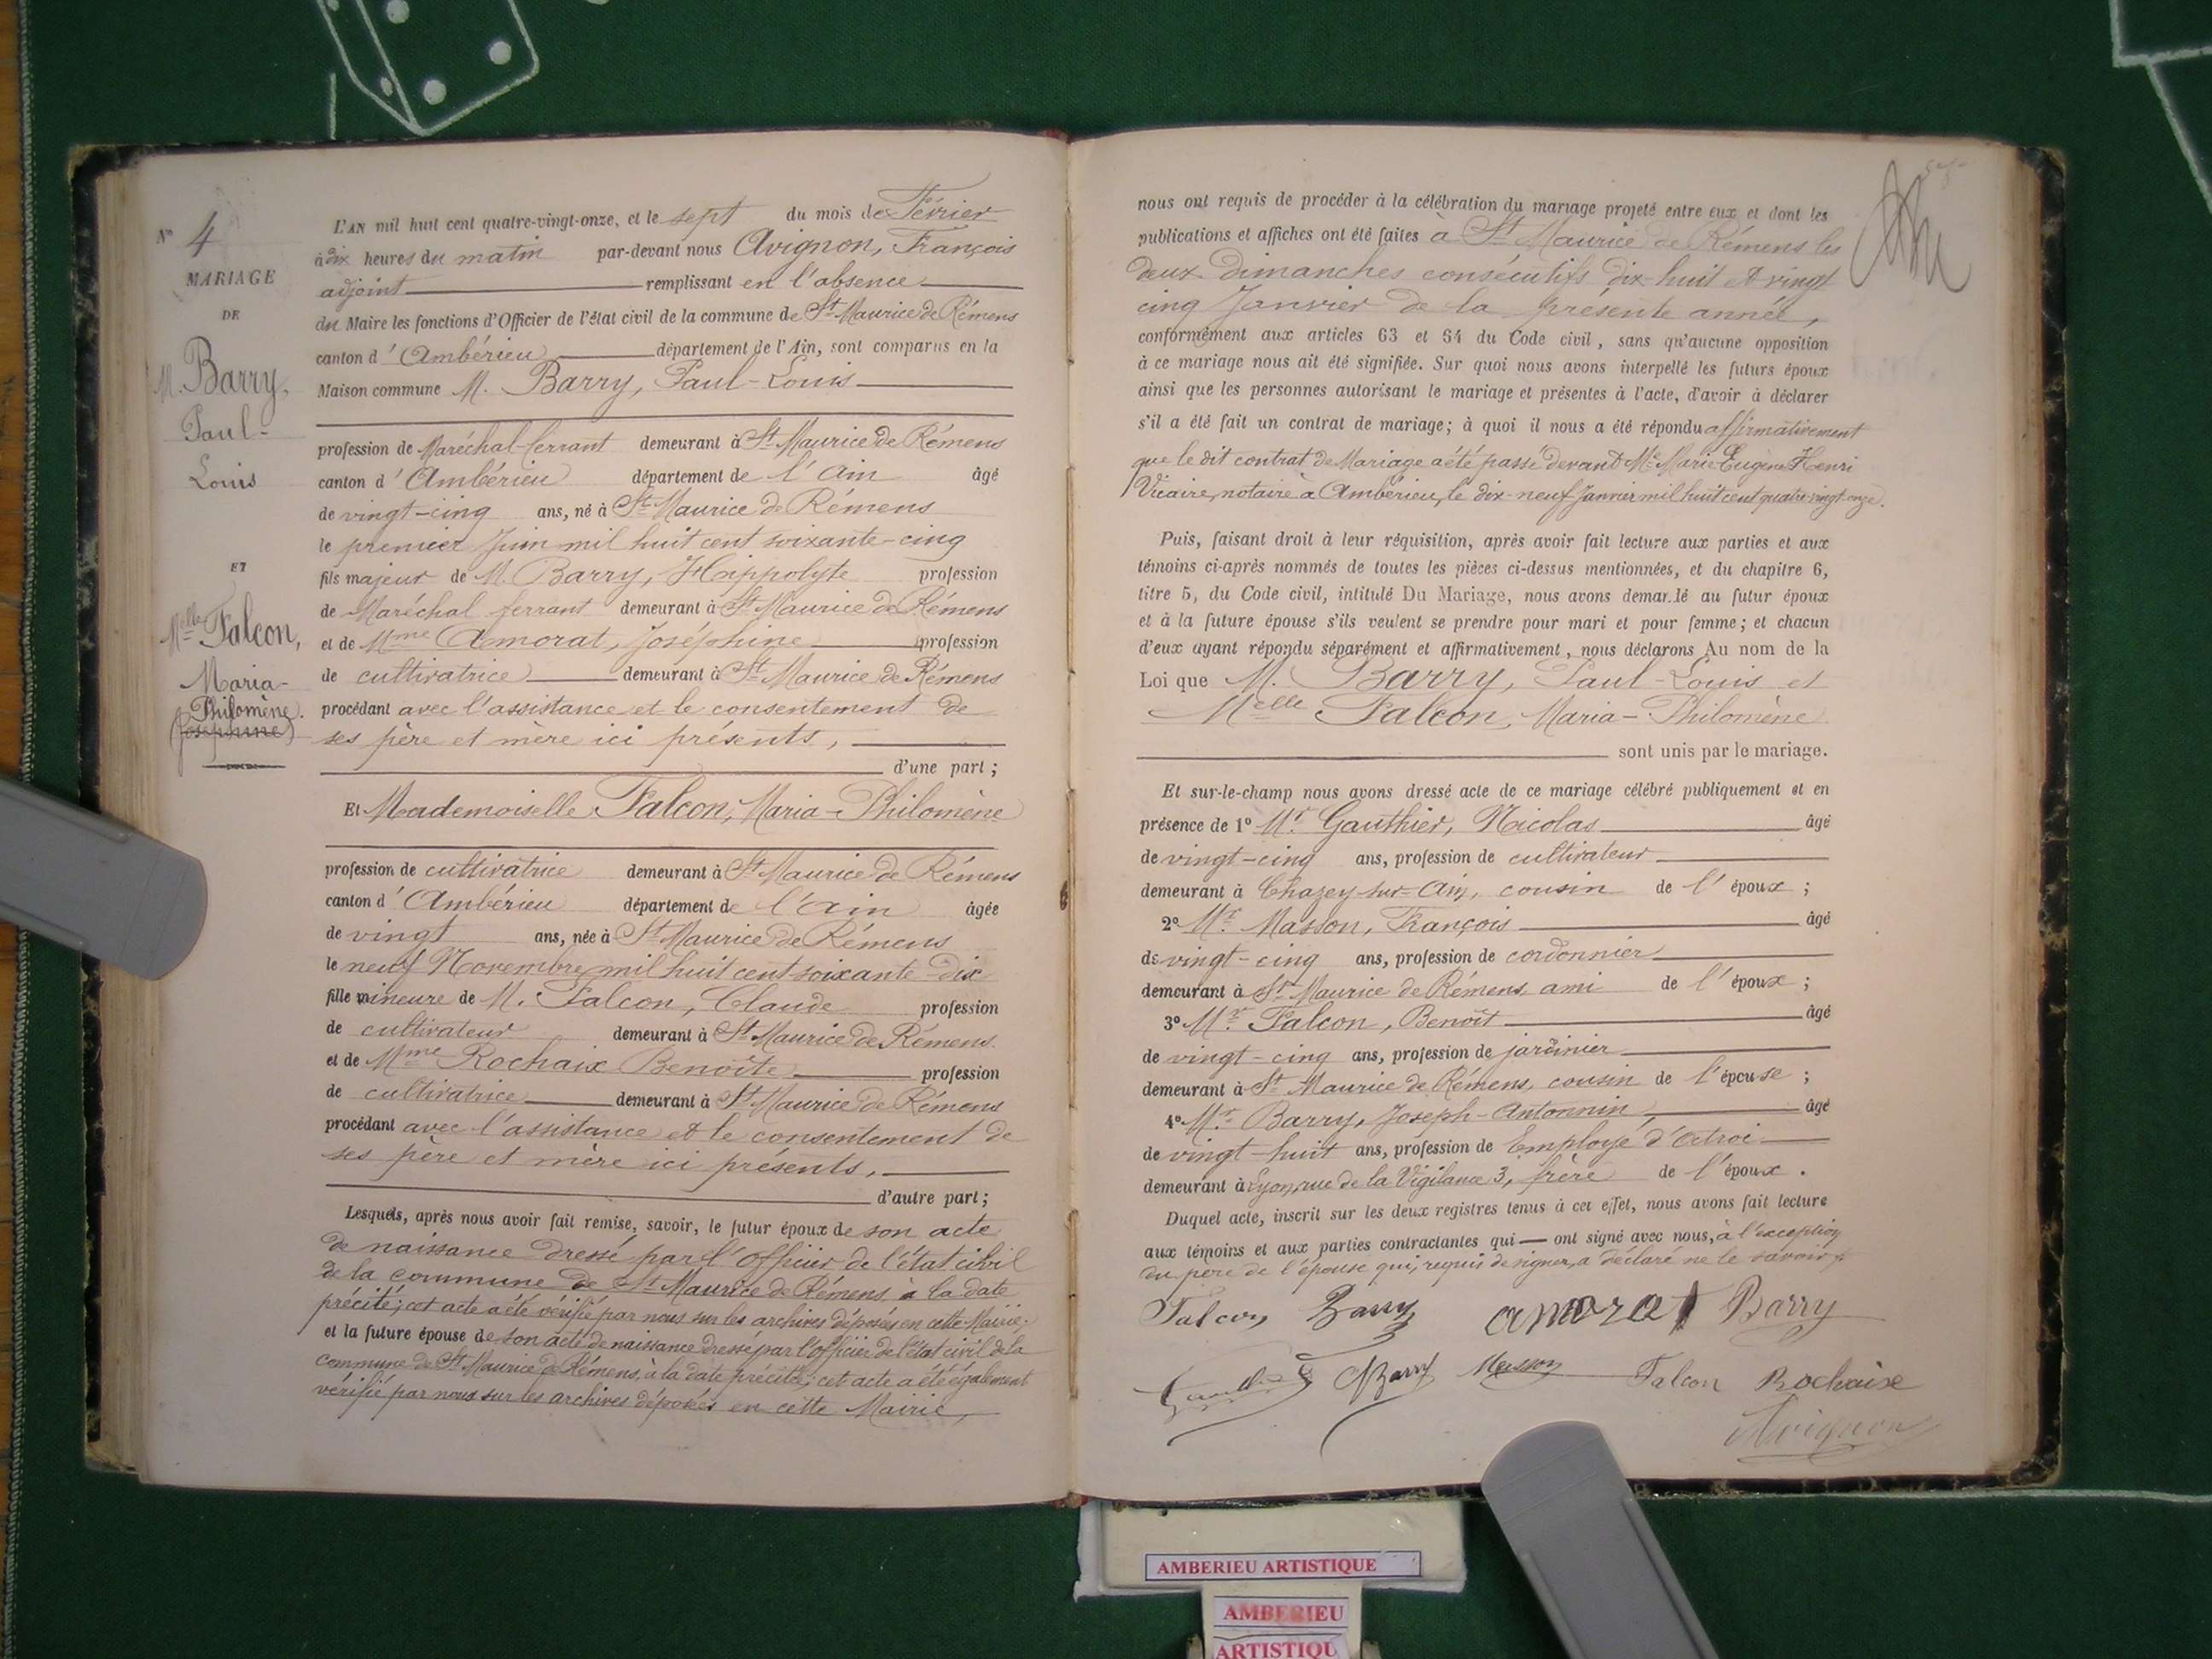 N° 4
MARIAGE
DE
M. Barry,
Paul-
Louis
ET
Melle Falcon,
Maria-
Philomène.
(Joséphine)
L'AN mil huit cent quatre-vingt-onze, et le sept du mois de Février
à dix heures du matin par-devant nous Avignon, François
adjoint remplissant en l'absence
du Maire les fonctions d'Officier de l'état civil de la commune de St Maurice de Rémens
canton d'Ambérieu département de l'Ain, sont comparus en la
Maison commune M. Barry, Paul-Louis
profession de Maréchal-ferrant demeurant à St Maurice de Rémens
canton d'Ambérieu département de l'Ain âgé
de vingt-cinq ans, né à St Maurice de Rémens
le premier Juin mil huit cent soixante-cinq
fils majeur de M. Barry, Hippolyte profession
de Maréchal ferrant demeurant à St Maurice de Rémens
et de Mme Amorat, Joséphine profession
de cultivatrice demeurant à St Maurice de Rémens
procédant avec l'assistance et le consentement de
ses père et mère ici présents,
d'une part;
Et Mademoiselle Falcon, Maria-Philomène
profession de cultivatrice demeurant à St Maurice de Rémens
canton d'Ambérieu département de l'Ain âgée
de vingt ans, née à St Maurice de Rémens
le neuf Novembre mil huit cent soixante-dix
fille mineure de M. Falcon, Claude profession
de cultivateur demeurant à St Maurice de Rémens
et de Mme Rochaix Benoîte profession
de cultivatrice demeurant à St Maurice de Rémens
procédant avec l'assistance et le consentement de
ses père et mère ici présents,
d'autre part;
Lesquels, après nous avoir fait remise, savoir, le futur époux de son acte
de naissance dressé par l'officier de l'état civil
de la commune de St Maurice de Rémens à la date
précité; cet acte a été vérifié par nous sur les archives déposées en cette Mairie;
et la future épouse de son acte de naissance dressé par l'officier de l'état civil de la
commune de St Maurice de Rémens, à la date précitée; cet acte a été également
vérifié par nous sur les archives déposées en cette Mairie,
nous ont requis de procéder à la célébration du mariage projeté entre eux et dont les
publications et affiches ont été faites à St Maurice de Rémens les
deux dimanches consécutifs dix-huit et vingt
cinq Janvier de la présente année,
conformément aux articles 63 et 64 du Code civil, sans qu'aucune opposition
à ce mariage nous ait été signifiée. Sur quoi nous avons interpellé les futurs époux
ainsi que les personnes autorisant le mariage et présentes à l'acte, d'avoir à déclarer
s'il a été fait un contrat de mariage; à quoi il nous a été répondu affirmativement
que le dit contrat de Mariage a été passé devant Me Marie Eugène Henri
Vicaire, notaire à Ambérieu, le dix-neuf Janvier mil huit cent quatre-vingt-onze.
Puis, faisant droit à leur réquisition, après avoir fait lecture aux parties et aux
témoins ci-après nommés de toutes les pièces ci-dessus mentionnées, et du chapitre 6,
titre 5, du Code civil, intitulé Du Mariage, nous avons demandé au futur époux
et à la future épouse s'ils veulent se prendre pour mari et pour femme; et chacun
d'eux ayant répondu séparément et affirmativement, nous déclarons Au nom de la
Loi que M. Barry, Paul-Louis et
Melle Falcon, Maria-Philomène
sont unis par le mariage.
Et sur-le-champ nous avons dressé acte de ce mariage célébré publiquement et en
présence de 1° Mr Gauthier, Nicolas âgé
de vingt-cinq ans, profession de cultivateur
demeurant à Chazey-sur-Ain, cousin de l'époux;
2° Mr Masson, François âgé
de vingt-cinq ans, profession de cordonnier
demeurant à St Maurice de Rémens, ami de l'époux;
3° Mr Falcon, Benoît âgé
de vingt-cinq ans, profession de jardinier
demeurant à St Maurice de Rémens, cousin de l'épouse;
4° Mr Barry, Joseph-Antonnin, âgé
de vingt-huit ans, profession de Employé d'Octroi
demeurant à Lyon, rue de la Vigilance 3, frère de l'époux.
Duquel acte, inscrit sur les deux registres tenus à cet effet, nous avons fait lecture
aux témoins et aux parties contractantes qui ont signé avec nous, à l'exception
du père de l'épouse qui, requis de signer, a déclaré ne le savoir.
Falcon Barry Amorat Barry
Gauthier Barry Masson Falcon Rochaix
Avignon
AMBERIEU ARTISTIQUE
AMBERIEU
ARTISTIQU